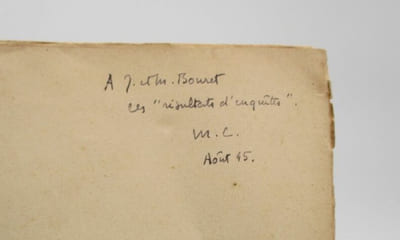 A J. et M. Bouret
ces "résultats d'enquêtes".
M. C.
Août 45.